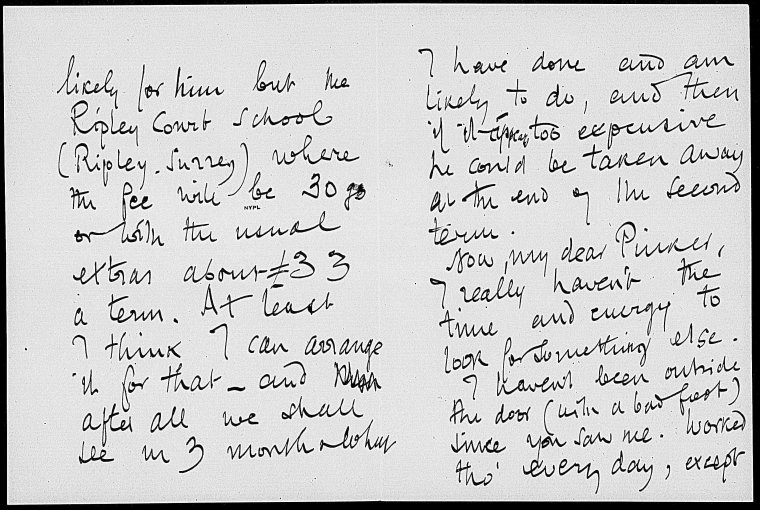 likely for him but the
Ripley Court School
(Ripley. Surrey) where
the fee will be 30 gs
NYPL
or with the usual
extras about £33
a term. At least
I think I can arrange
it for that – and
after all we shall
see in 3 months what
I have done and am
likely to do, and then
if it too expensive
he could be taken away
at the end of the second
term.
Now, my dear Pinker,
I really haven't the
time and energy to
look for something else.
I haven't been outside
the door (with a bad foot)
since you saw me. Worked
tho' every day, except